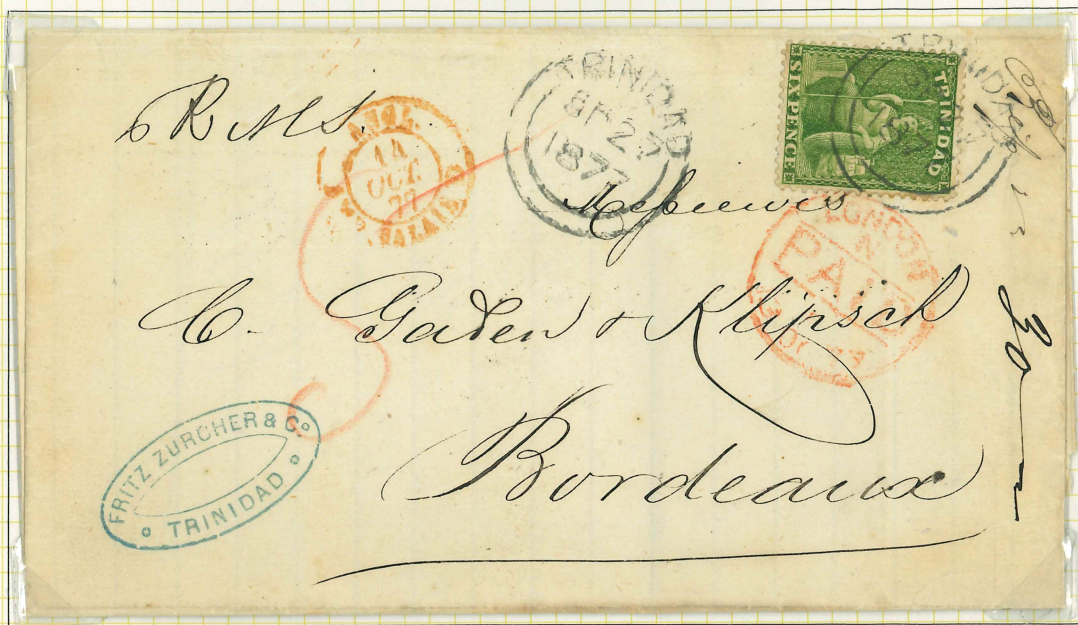 p RMS.
ANGL.
14
OCT.
77
CALAIS
TRINIDAD
SP 27
1877
TRINIDAD
SIX PENCE
TRINIDAD
LONDON
N
PAID
Messieurs
C. Gaden & Klipsch
Bordeaux
FRITZ ZURCHER & Co.
TRINIDAD